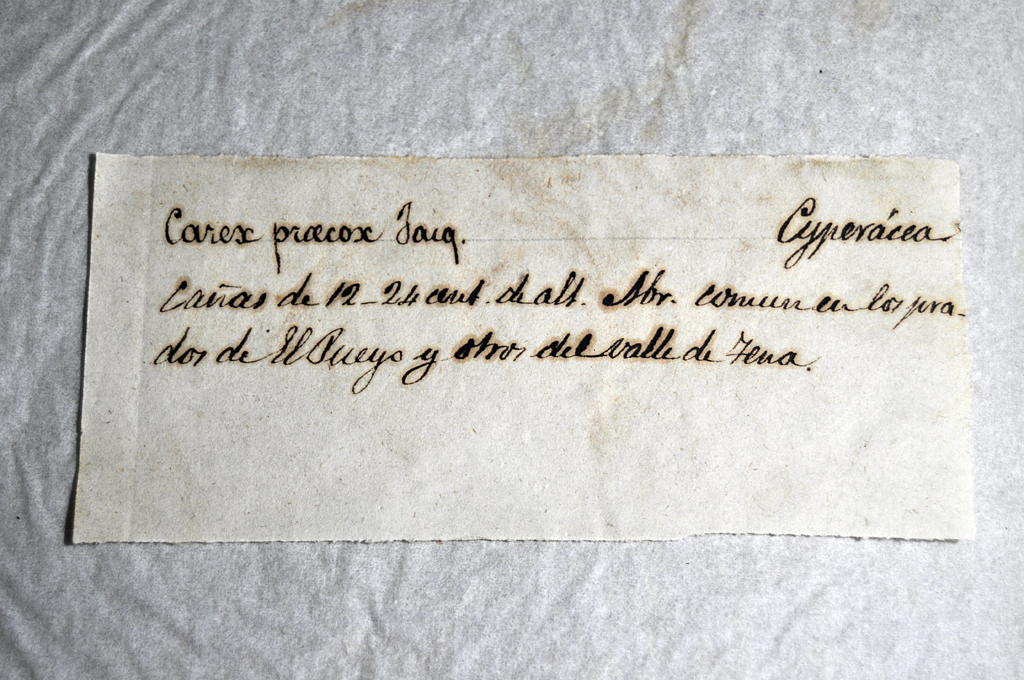 Carex præcox Jacq. Cyperácea
Cañas de 12-24 cent. de alt. Abr. comun en los pra-
dos de El Pueyo y otros del valle de Tena.